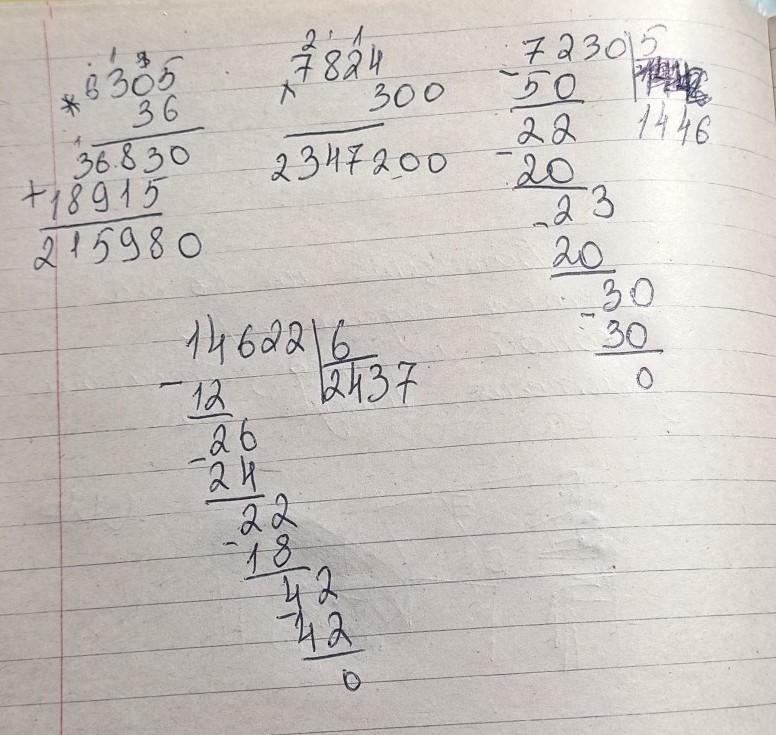 6305
* 36
36.830
+ 18915
215980
2 1
7824
× 300
2347200
7230 | 5
- 50
22 1446
- 20
- 23
20
30
- 30
0
14622 | 6
- 12 2437
26
- 24
22
- 18
42
- 42
0